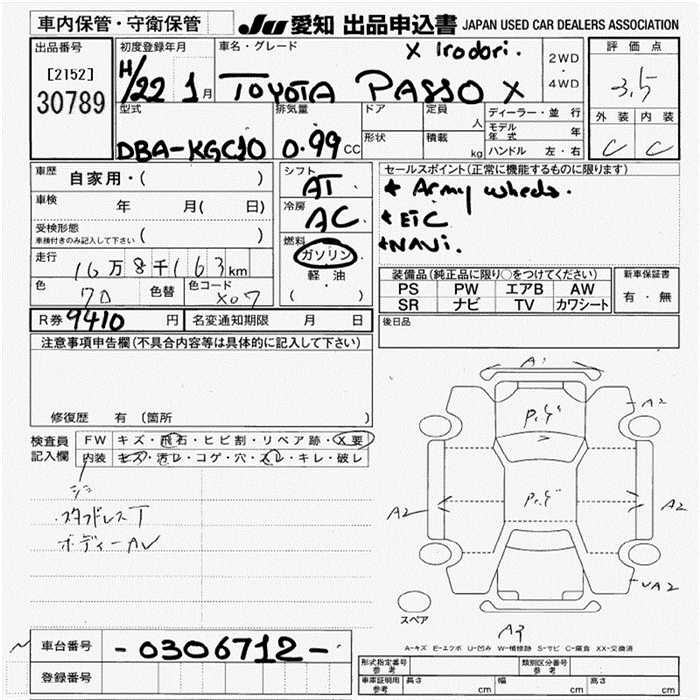 車内保管・守衛保管
JU 愛知 出品申込書 JAPAN USED CAR DEALERS ASSOCIATION
出品番号
[2152]
30789
初度登録年月
H/22 1月
車名・グレード
X Irodori.
TOYOTA PASSO X
2WD
・
4WD
評価点
3.5
外装 内装
C C
型式
DBA-KGC10
排気量
0.99 CC
ドア
形状
定員
人
積載
kg
ディーラー・並行
モデル年式 年
ハンドル 左・右
車歴 自家用・( )
車検 年 月( 日)
受検形態
車検付きのみ記入して下さい ( )
走行 16万8千163km
色 色替 色コード X07
R券 9410 円 名変通知期限 月 日
シフト
AT
冷房
AC
燃料
ガソリン
軽油
( )
セールスポイント(正常に機能するものに限ります)
* Army wheels.
* ETC
* NAVI.
装備品(純正品に限り○をつけてください)
PS PW エアB AW
SR ナビ TV カワシート
新車保証書
有・無
後日品
注意事項申告欄(不具合内容等は具体的に記入して下さい)
修復歴 有 〔箇所 〕
検査員記入欄
FW キズ・飛石・ヒビ割・リペア跡・X要
内装 キズ・汚レ・コゲ・穴・スレ・キレ・破レ
スタッドレスT
ボディーカレ
A1
A2
P.G
A2
P.G
A2
A2
スペア
A-キズ E-エクボ U-凹み W-補修跡 S-サビ C-腐食 XX-交換済
車台番号 -0306712-
登録番号
型式指定番号 参考
類別区分番号 参考
車庫証明用 参考 長さ cm 幅 cm 高さ cm